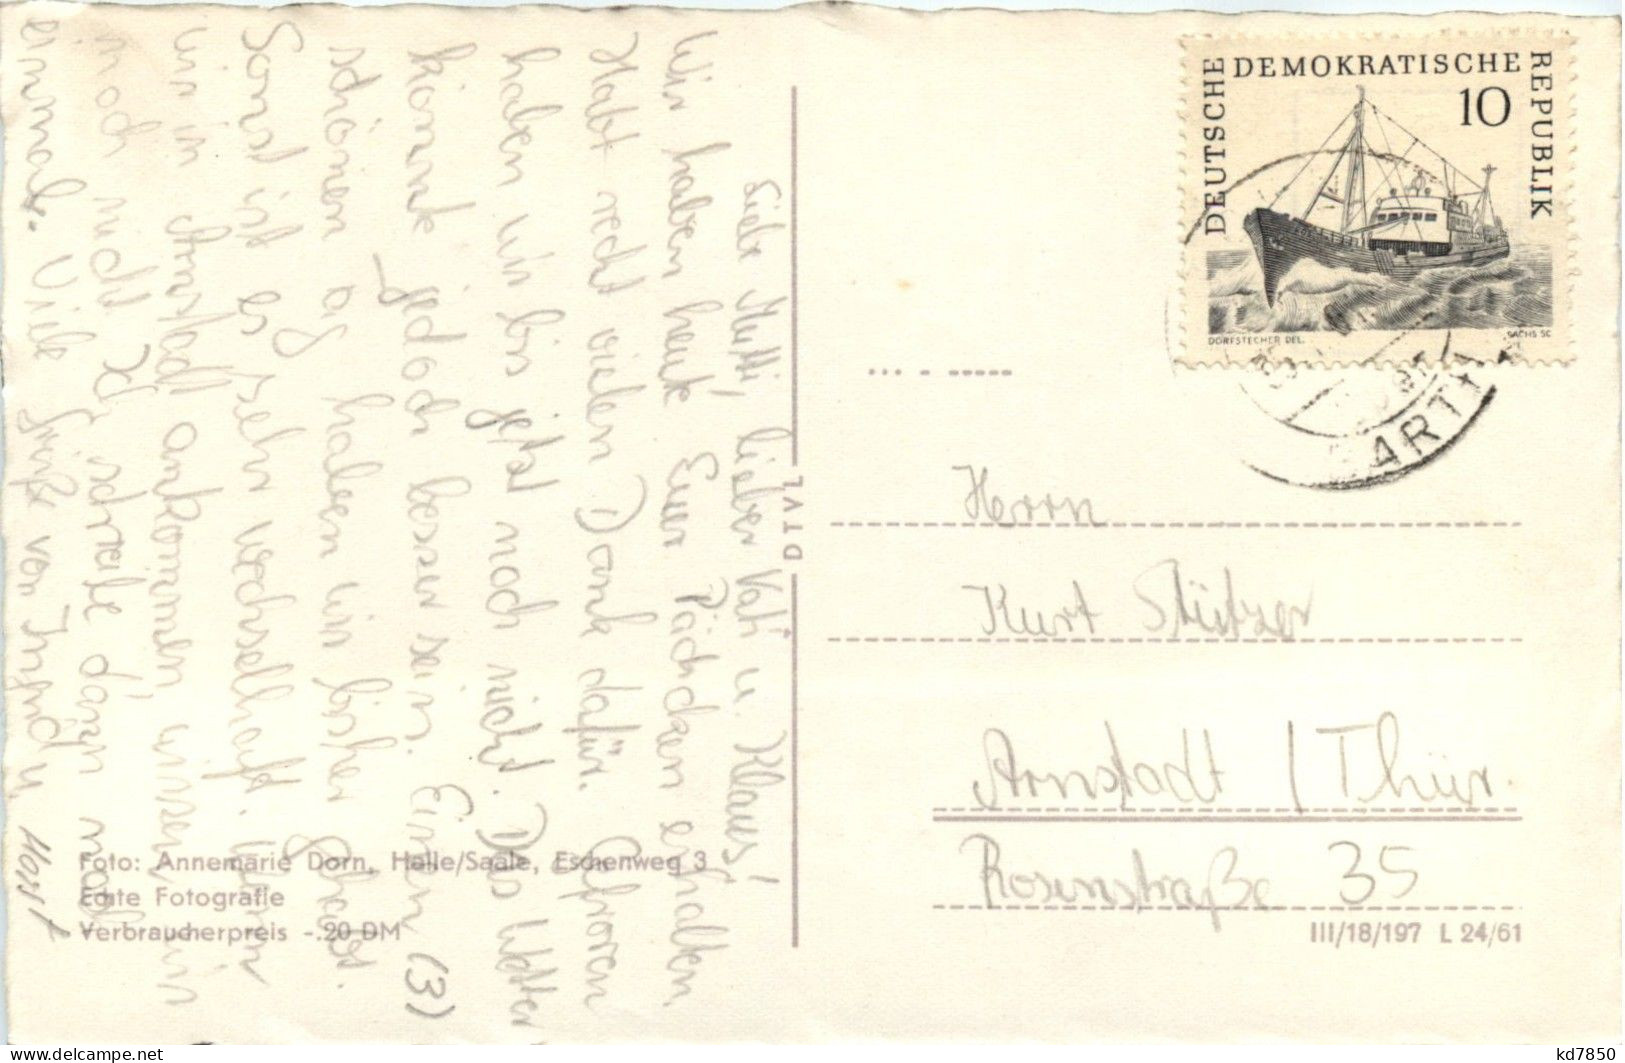 Liebe Mutti, lieber Vati u. Klaus!
Wir haben heute Euer Päckchen erhalten
Habt recht vielen Dank dafür. Gefroren
haben wir bis jetzt noch nicht. Das Wetter
könnte jedoch besser sein. Einen (3)
schönen Tag haben wir bisher gehabt.
Sonst ist es sehr wechselhaft. Wann
wir in Arnstadt ankommen, wissen wir
noch nicht. Ich schreibe dann noch
einmal. Viele Grüße von Ingrid u. Horst
DEUTSCHE DEMOKRATISCHE REPUBLIK
10
DORFSTECHER DEL.
SACHS SC
BARTH
DTVL
Herrn
Kurt Stützer
Arnstadt / Thür.
Rosenstraße 35
Foto: Annemarie Dorn, Halle/Saale, Eschenweg 3
Echte Fotografie
Verbraucherpreis -.20 DM
III/18/197 L 24/61
kd7850